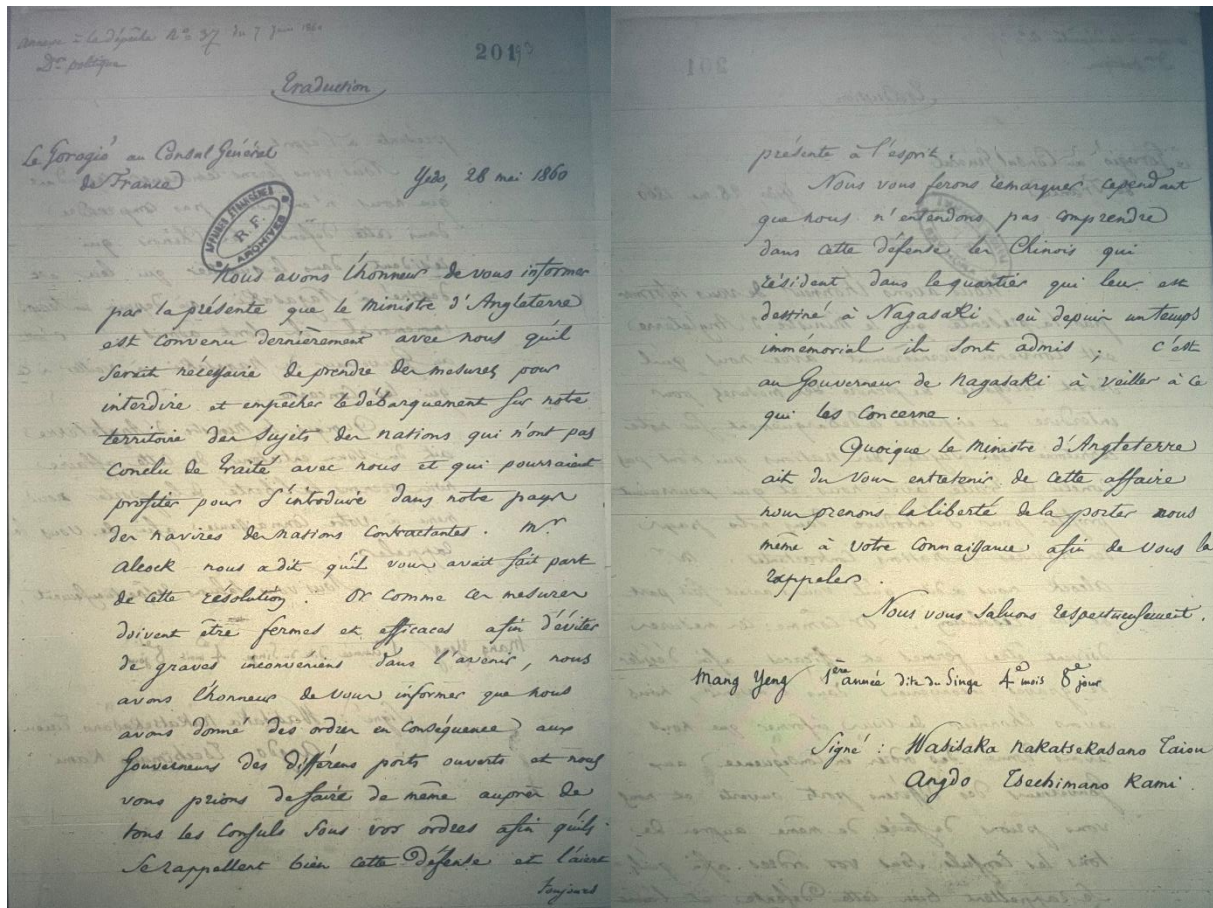 annexe à la dépêche No 37 du 7 Juin 1860
Don politique
201
193
Traduction
Le Gorogio au Consul Général
de France
Yedo, 28 mai 1860
AFFAIRES ETRANGÈRES
R.F.
ARCHIVES
Nous avons l'honneur de vous informer
par la présente que le Ministre d'Angleterre
est convenu dernièrement avec nous qu'il
serait nécessaire de prendre des mesures pour
interdire et empêcher le débarquement sur notre
territoire des sujets des nations qui n'ont pas
conclu de Traité avec nous et qui pourraient
profiter pour s'introduire dans notre pays
des navires des nations contractantes. Mr
Alcock nous a dit qu'il vous avait fait part
de cette résolution. Or comme ces mesures
doivent être fermes et efficaces afin d'éviter
de graves inconveniens dans l'avenir, nous
avons l'honneur de vous informer que nous
avons donné des ordres en conséquence aux
Gouverneurs des différens ports ouverts et nous
vous prions de faire de même auprès de
tous les Consuls sous vos ordres afin qu'ils
se rappellent bien cette défense et l'aient
toujours
présente à l'esprit.
Nous vous ferons remarquer cependant
que nous n'entendons pas comprendre
dans cette défense les Chinois qui
résident dans le quartier qui leur est
destiné à Nagasaki où depuis un temps
immémorial ils sont admis; c'est
au Gouverneur de Nagasaki à veiller à ce
qui les concerne.
Quoique le Ministre d'Angleterre
ait du vous entretenir de cette affaire
nous prenons la liberté de la porter nous
même à votre connaissance afin de vous la
rappeler.
Nous vous saluons respectueusement.
Mang Yeng 1ère année dite du Singe 4e mois 8e jour
Signé: Wasisaka Nakatsekasano Taiou
Angdo Tsechimano Kami.